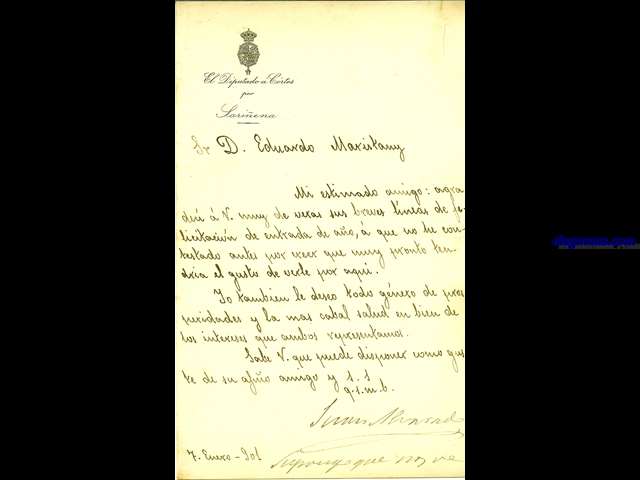 El Diputado a Córtes
por
Sariñena
Sr D. Eduardo Maristany
Mi estimado amigo: agra
decí á V. muy de veras sus breves líneas de fe-
licitación de entrada de año, á que no he con-
testado antes por creer que muy pronto ten
dria el gusto de verle por aqui.
Yo tambien le deseo todo género de pros
peridades y la mas cabal salud en bien de
los intereses que ambos representamos.
Sabe V. que puede disponer como gus
te de su afmo amigo y s. s
q. s. m. b.
Juan Alvarado
7. Enero - 901
que nos ve